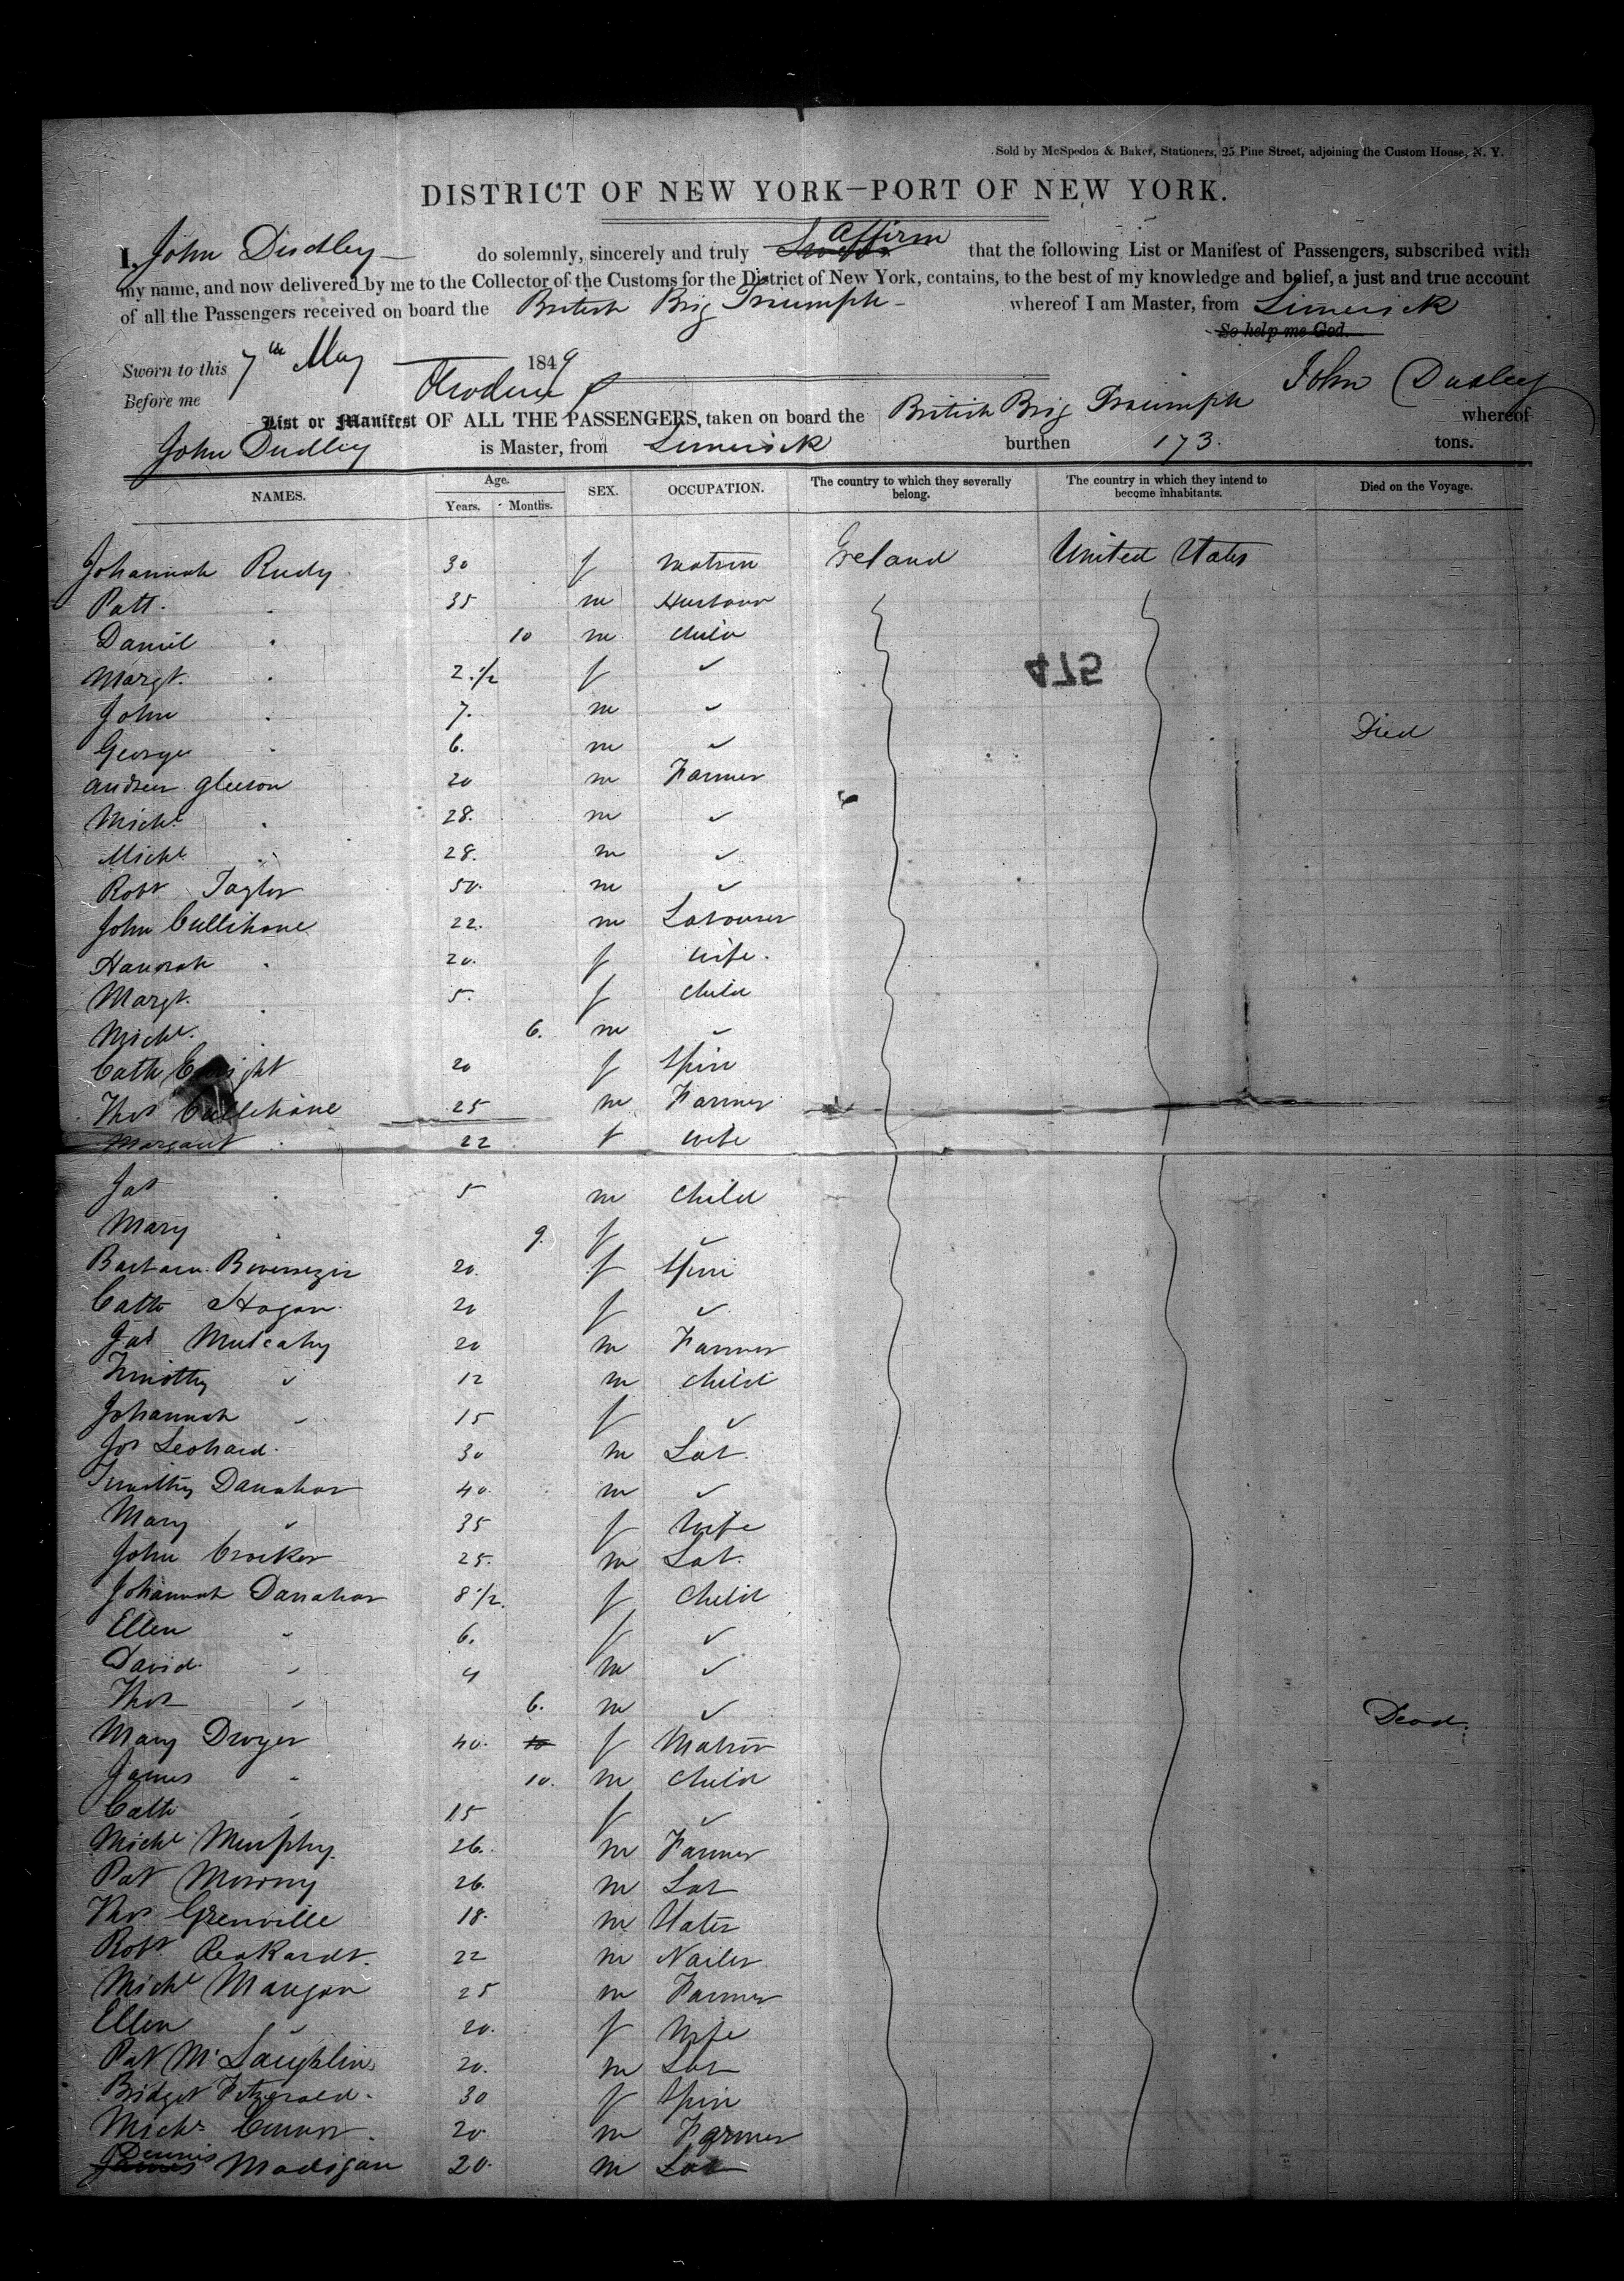 Sold by McSpedon & Baker, Stationers, 25 Pine Street, adjoining the Custom House, N. Y.
DISTRICT OF NEW YORK—PORT OF NEW YORK.
I, John Dudley do solemnly, sincerely and truly Affirm that the following List or Manifest of Passengers, subscribed with
my name, and now delivered by me to the Collector of the Customs for the District of New York, contains, to the best of my knowledge and belief, a just and true account
of all the Passengers received on board the British Brig Triumph whereof I am Master, from Limerick
So help me God.
Sworn to this 7th May 1849
Before me John Dudley
List or Manifest OF ALL THE PASSENGERS, taken on board the British Brig Triumph whereof
John Dudley is Master, from Limerick burthen 173. tons.
NAMES. Age. Years. Months. SEX. OCCUPATION. The country to which they severally belong. The country in which they intend to become inhabitants. Died on the Voyage.
Johannah 30 f Matron Ireland United States
Patt. 35 m
Daniel 10 m Child
475
Margt. 2 1/2 f ✓
John 7. m ✓
George 6. m ✓ Died
Andrew Gleeson 20 m Farmer
Michl 28. m ✓
Michl 28. m ✓
Robt Taylor 50. m ✓
John Cullihane 22. m Labourer
Hanorah 20. f Wife.
Margt. 5. f Child
Michl. 6. m ✓
Cath 20 f Spin
Thos Cullihane 25 m Farmer
Margaret 22 f Wife
Jas 5 m Child
Mary 9. f ✓
20. f Spin
Cath Hogan 20 f ✓
Jas Mulcahy 20 m Farmer
Timothy ✓ 12 m Child
Johannah 15 f ✓
Jos Leohard 30 m Lab.
Timothy Danahar 40. m ✓
Mary ✓ 35 f Wife
John Crocker 25. m Lab.
Johannah Danahar 8 1/2. f Child
Ellen " 6. f ✓
David " 4 m ✓
Thos " 6. m ✓ Dead.
Mary Dwyer 40. 10 f Matron
James " 10. m Child
Cath " 15 f ✓
Michl Murphy. 26. m Farmer
Pat 26. m Lab
Thos Grenville 18. m Slater
Robt 22 m Nailer
Michl Mangan 25 m Farmer
Ellen ✓ 20. f Wife
Pat McLaughlin 20. m Lab
Bridget Fitzgerald. 30 f Spin
Michl Connor. 20. m Farmer
James Dennis Madigan 20. m Lab